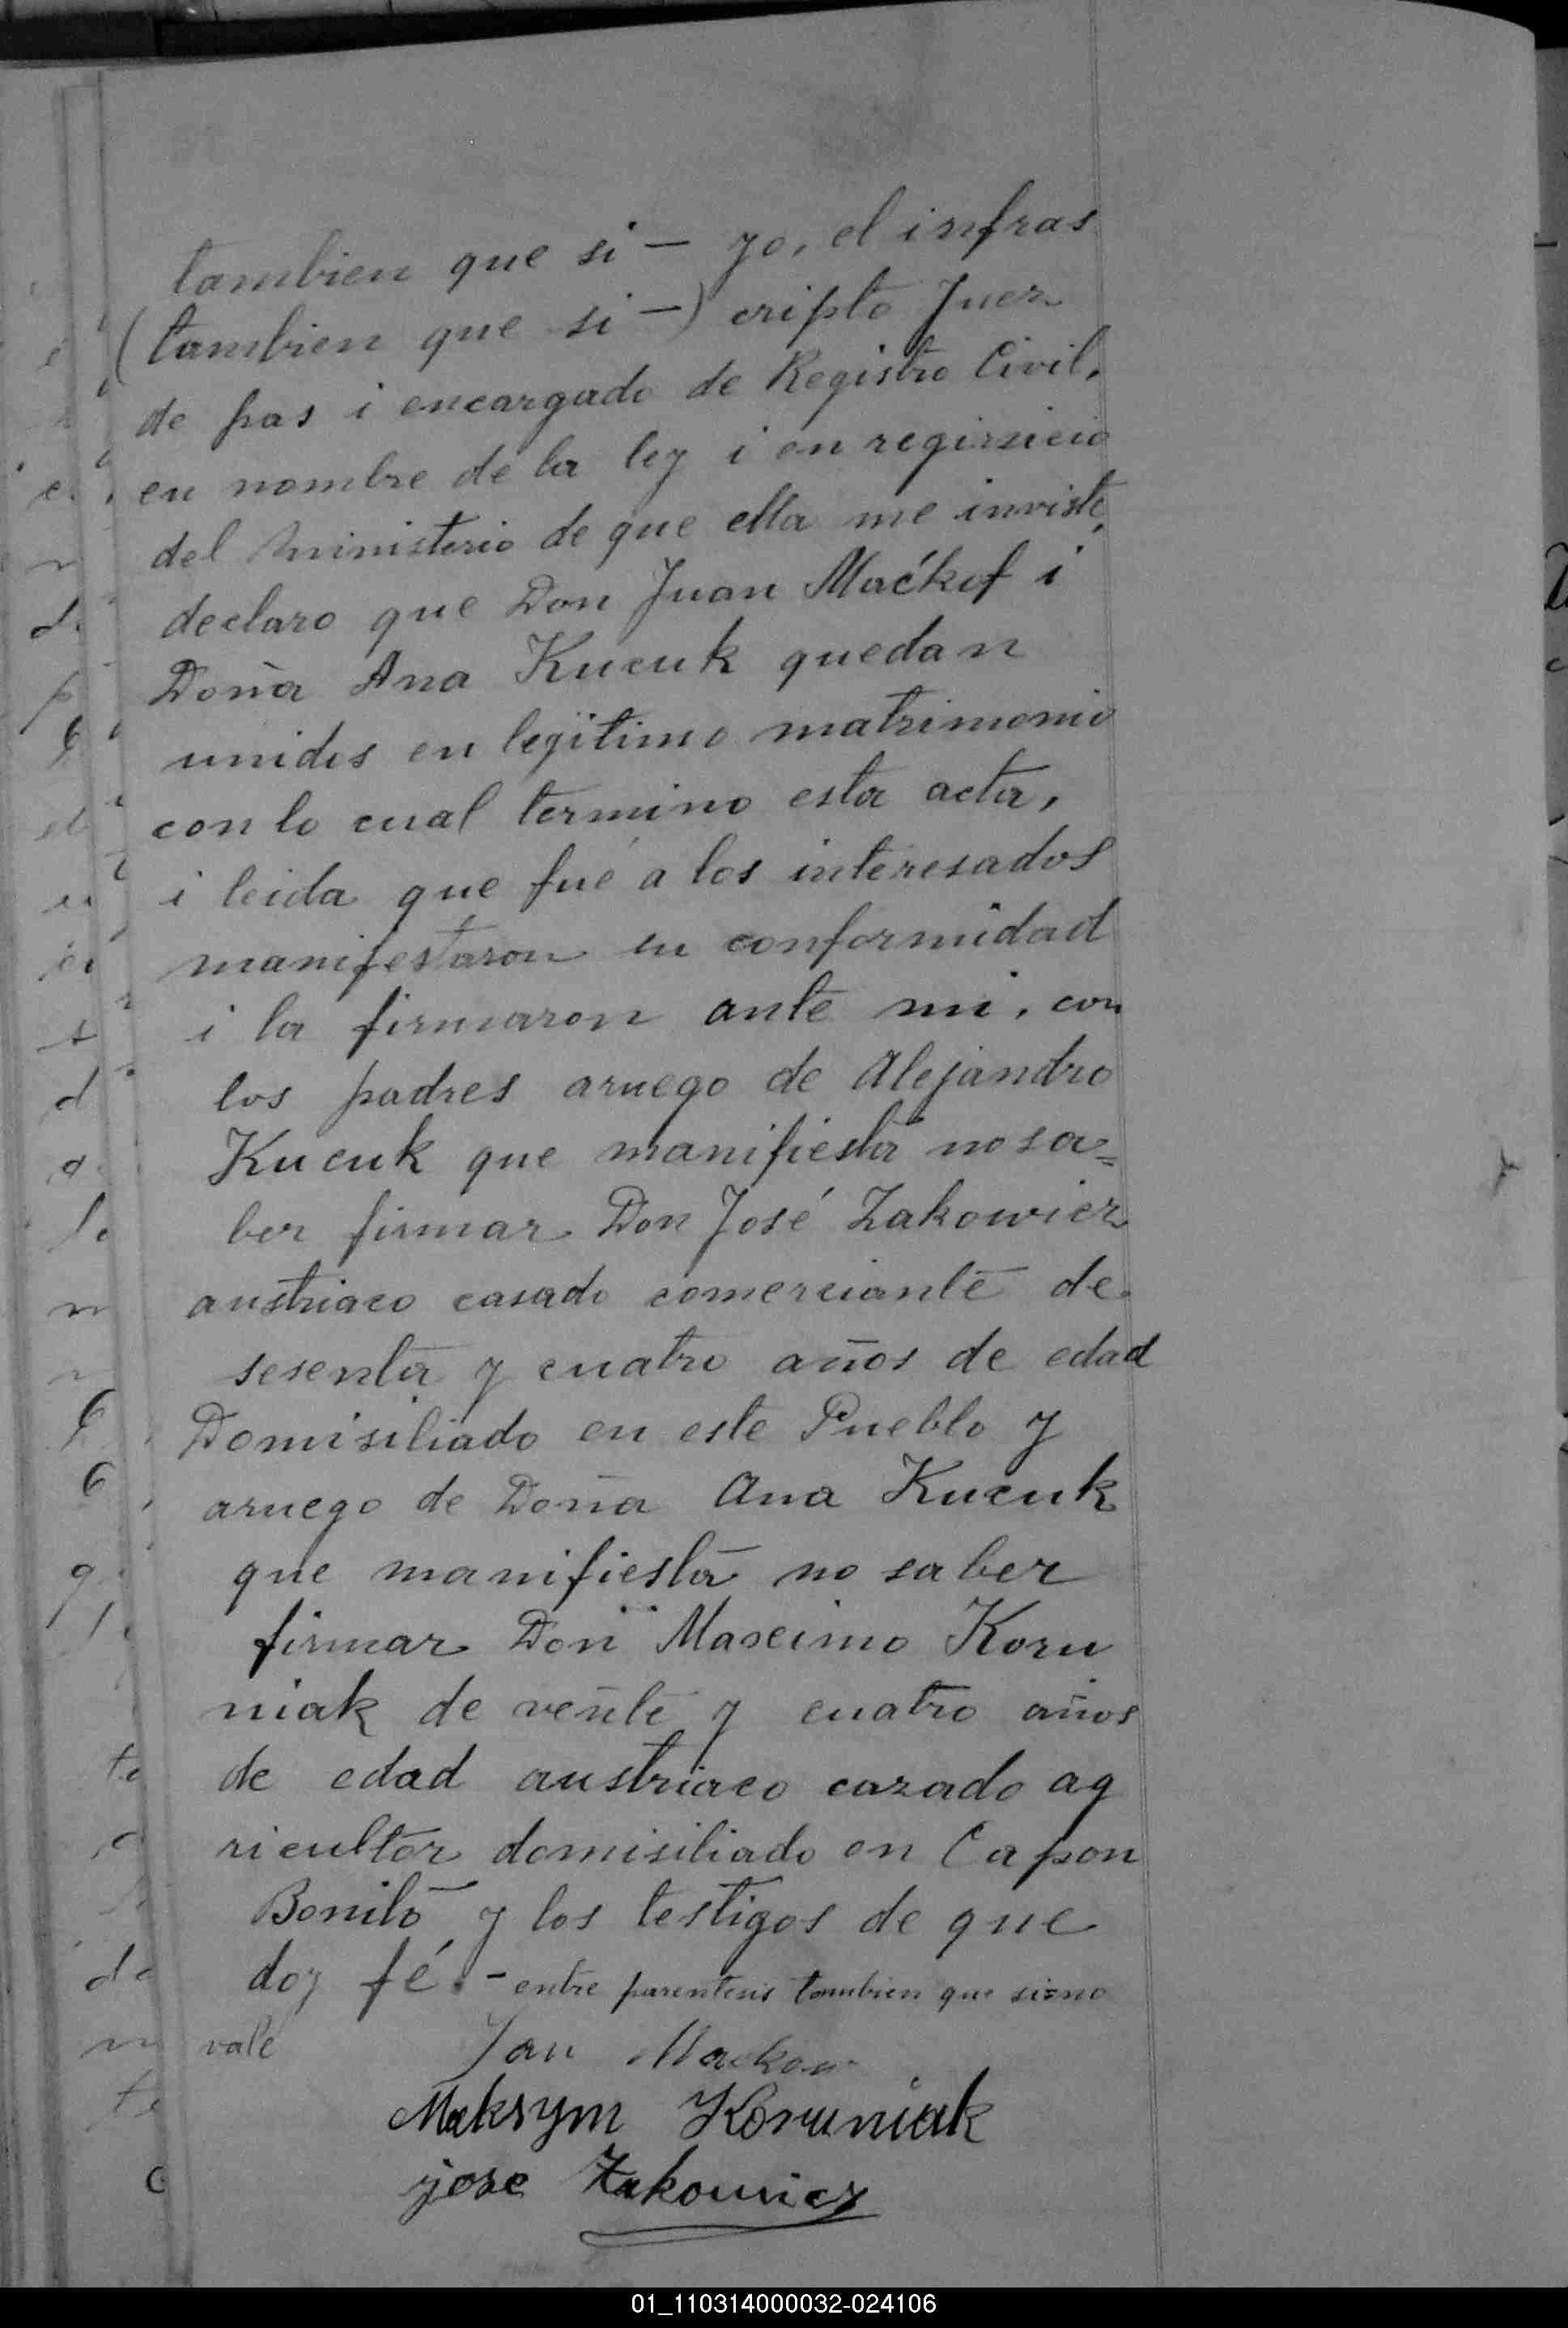 tambien que si — yo, el infras
(tambien que si —) cripto Juez
de pas i encargado de Registro Civil,
en nombre de la ley i en regirsicio
del Ministerio de que ella me inviste,
declaro que Don Juan Maćkof i
Doña Ana Kucuk quedan
unidos en legitimo matrimonio
con lo cual termino esta acta,
i leida que fué a los interesados
manifestaron su conformidad
i la firmaron ante mi, con
los padres aruego de Alejandro
Kucuk que manifiesta no sa=
ber firmar Don José Zakowicz
austriaco casado comerciante de
sesenta y cuatro años de edad
Domisiliado en este Pueblo y
aruego de Doña Ana Kucuk
que manifiesta no saber
firmar Don Mascimo Koru
niak de veinte y cuatro años
de edad austriaco cazado ag
ricultor domisiliado en Capon
Bonito y los testigos de que
doy fé. - entre parentesis tambien que si=no
vale Jan Mackow
Maksym Koruniak
jose Zakowicz
01_110314000032-024106